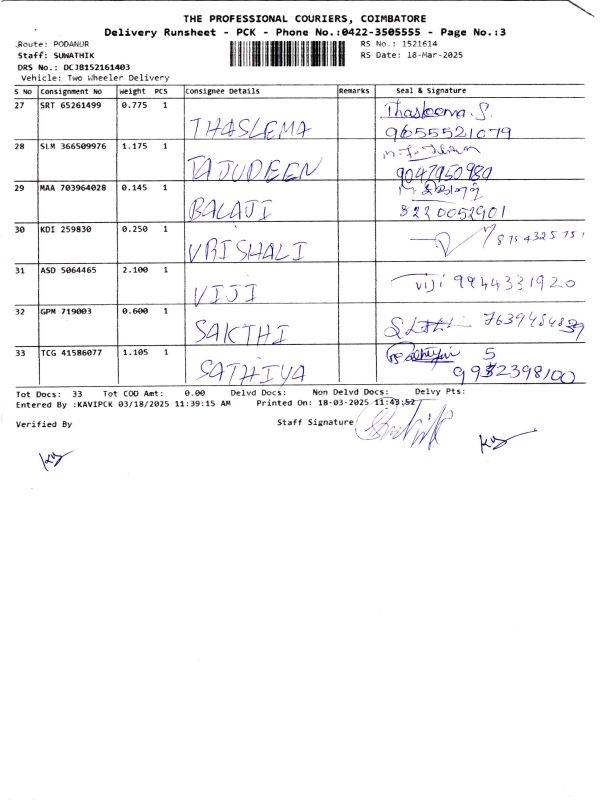 THE PROFESSIONAL COURIERS, COIMBATORE
Delivery Runsheet - PCK - Phone No.:0422-3505555 - Page No.:3
Route: PODANUR RS No.: 1521614
Staff: SUWATHIK RS Date: 18-Mar-2025
DRS No.: DCJB152161403
Vehicle: Two Wheeler Delivery
S No Consignment No Weight PCS Consignee Details Remarks Seal & Signature
27 SRT 65261499 0.775 1 THASLEMA Thasleema. S.
9655521079
28 SLM 366509976 1.175 1 TAJUDEEN
9047950980
29 MAA 703964028 0.145 1 BALAJI
8220052901
30 KDI 259830 0.250 1 VRISHALI 8754325751
31 ASD 5064465 2.100 1 VIJI Viji 9944331920
32 GPM 719003 0.600 1 SAKTHI
33 TCG 41586077 1.105 1 SATHIYA
Tot Docs: 33 Tot COD Amt: 0.00 Delvd Docs: Non Delvd Docs: Delvy Pts:
Entered By :KAVIPCK 03/18/2025 11:39:15 AM Printed On: 18-03-2025 11:43:52
Verified By Staff Signature